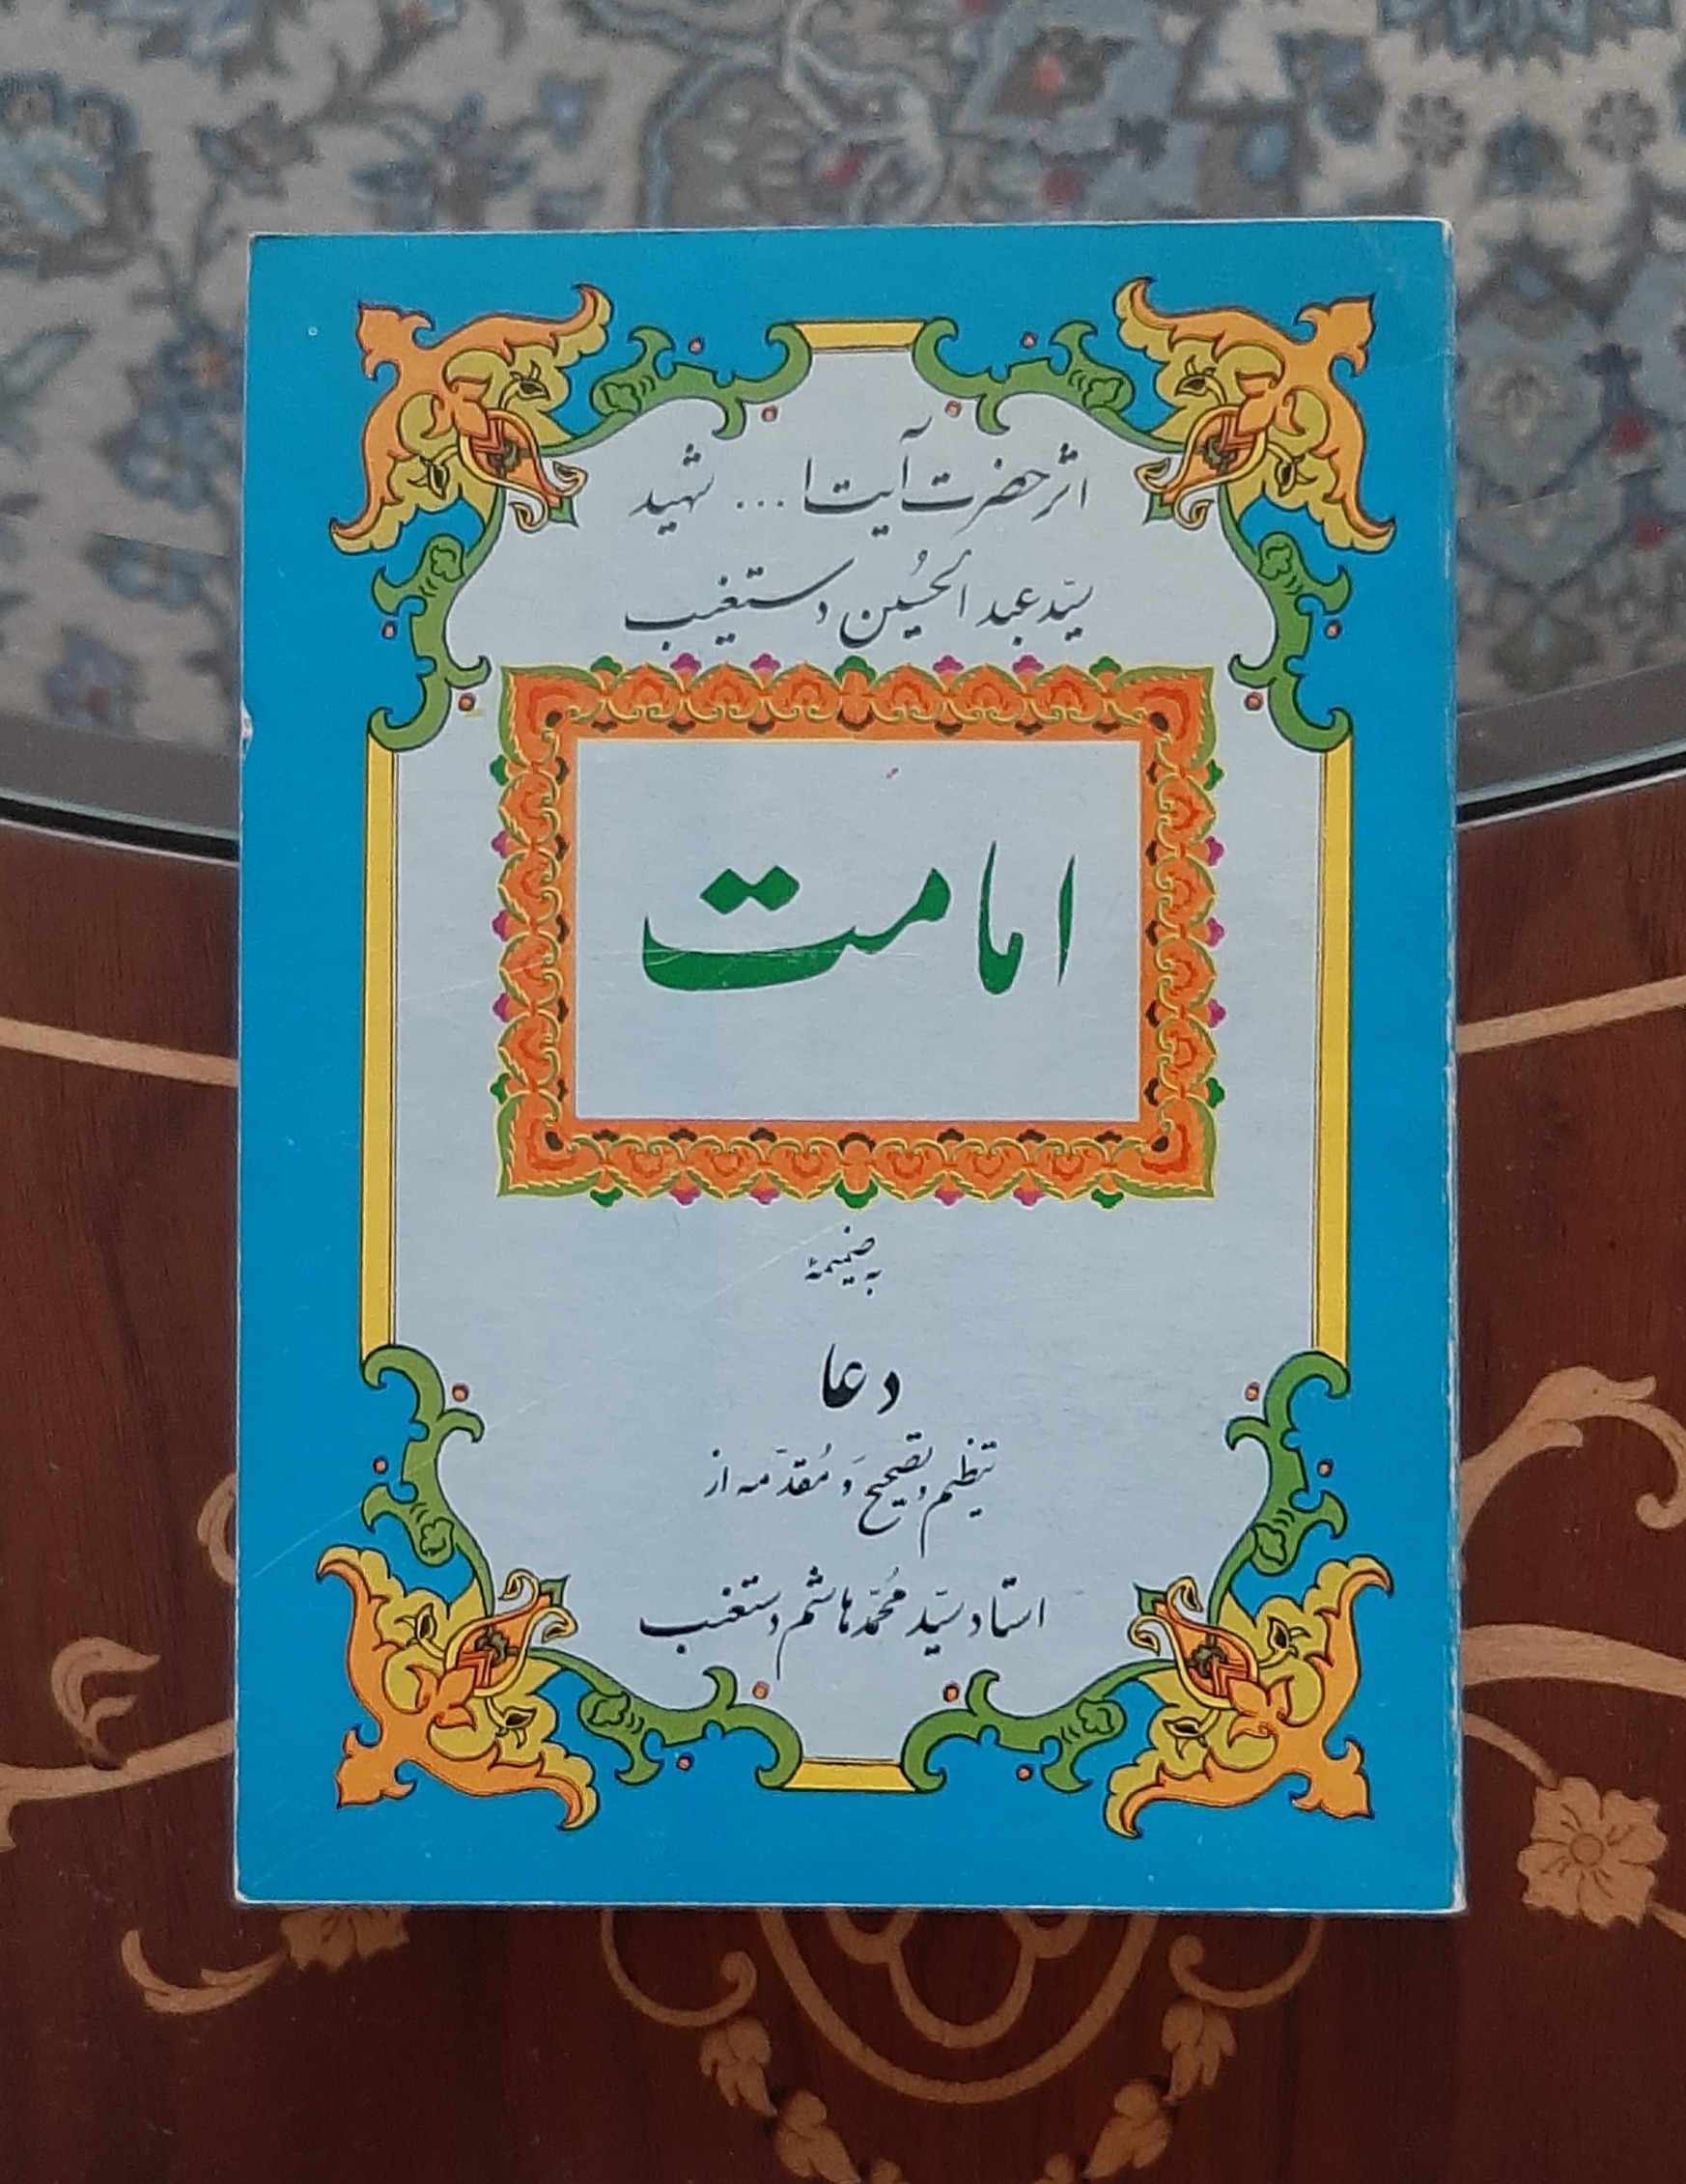 اثر حضرت آیت ا... شهید
سیّد عبد الحُسین دستغیب
امامت
به ضمیمهٔ
دعا
تنظیم و تصحیح وَ مُقدّمه از
استاد سیّد مُحمّد هاشم دستغیب